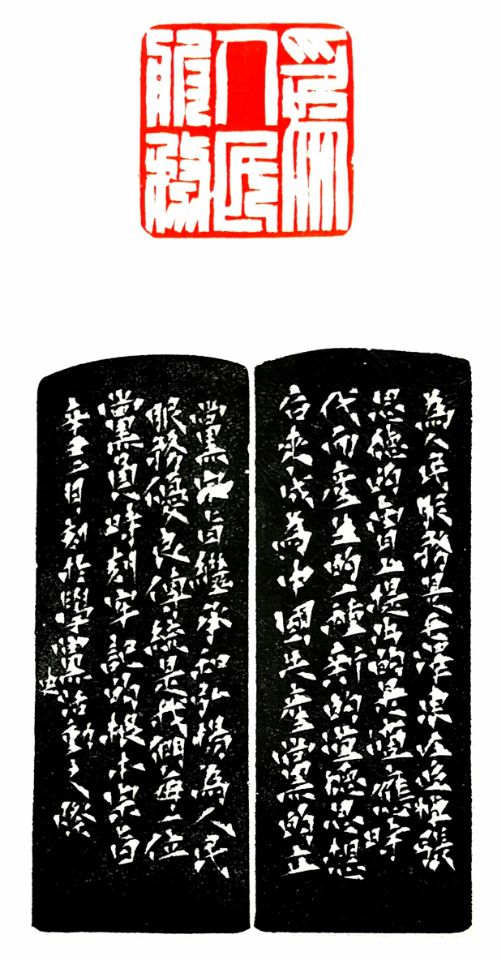 為
人民
服務
為人民服務是毛澤東在追悼張
思德的會上提出的是適應時
代而產生的一種新的道德思想
后來成為中國共產黨的立
黨宗旨繼承和弘揚為人民
服務優良傳統是我們每一位
黨員時刻牢記的根本宗旨
辛丑二月刻於學黨史活動之際